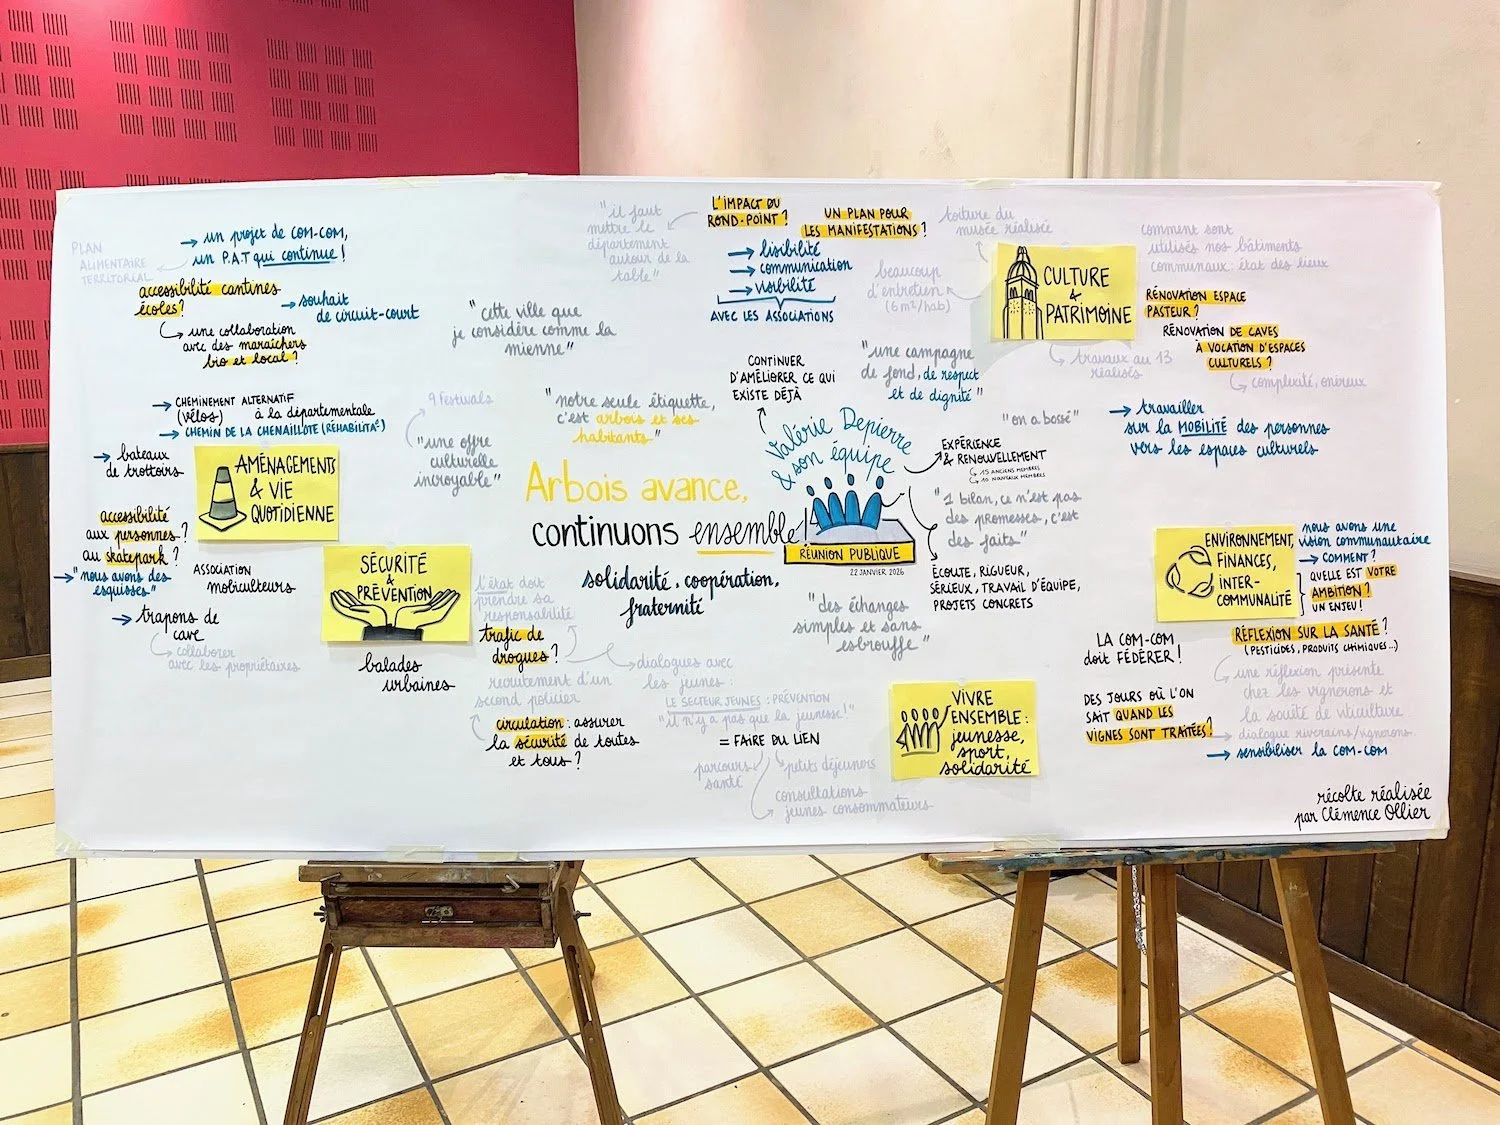 PLAN
ALIMENTAIRE
TERRITORIAL
→ un projet de COM-COM,
un P.A.T qui continue !
accessibilité cantines
écoles ?
→ souhait
de circuit-court
une collaboration
avec des maraîchers
bio et local ?
→ CHEMINEMENT ALTERNATIF
(vélos) à la départementale
→ CHEMIN DE LA CHENAILLOTE (RÉHABILITÉ)
→ bateaux
de trottoirs
AMÉNAGEMENTS
& VIE
QUOTIDIENNE
accessibilité
aux personnes ?
au skatepark ?
→ "nous avons des
esquisses"
ASSOCIATION
moliculteurs
→ trapons de
cave
collaborer
avec les propriétaires
SÉCURITÉ
&
PRÉVENTION
balades
urbaines
l'état doit
prendre sa
responsabilité
trafic de
drogues ?
recrutement d'un
second policier
circulation : assurer
la sécurité de toutes
et tous ?
→ dialogues avec
les jeunes :
LE SECTEUR JEUNES : PRÉVENTION
"il n'y a pas que la jeunesse !"
= FAIRE DU LIEN
parcours
santé
petits déjeuners
consultations
jeunes consommateurs
"cette ville que
je considère comme la
mienne"
9 festivals
"une offre
culturelle
incroyable"
"notre seule étiquette,
c'est arbois et ses
habitants"
Arbois avance,
continuons ensemble !
solidarité, coopération,
fraternité
"il faut
mettre le
département
autour de la
table"
L'IMPACT DU
ROND-POINT ?
UN PLAN POUR
LES MANIFESTATIONS ?
→ lisibilité
→ communication
→ visibilité
AVEC LES ASSOCIATIONS
CONTINUER
D'AMÉLIORER CE QUI
EXISTE DÉJÀ
"une campagne
de fond, de respect
et de dignité"
Valérie Depierre
& son équipe
RÉUNION PUBLIQUE
22 JANVIER 2026
EXPÉRIENCE
& RENOUVELLEMENT
15 ANCIENS MEMBRES
10 NOUVEAUX MEMBRES
"on a bossé"
"1 bilan, ce n'est pas
des promesses, c'est
des faits"
ÉCOUTE, RIGUEUR,
SÉRIEUX, TRAVAIL D'ÉQUIPE,
PROJETS CONCRETS
"des échanges
simples et sans
esbrouffe"
VIVRE
ENSEMBLE :
jeunesse,
sport,
solidarité
toiture du
musée réalisée
beaucoup
d'entretien
(6m²/hab)
CULTURE
&
PATRIMOINE
travaux au 13
réalisés
comment sont
utilisés nos bâtiments
communaux : état des lieux
RÉNOVATION ESPACE
PASTEUR ?
RÉNOVATION DE CAVES
À VOCATION D'ESPACES
CULTURELS ?
complexité, onéreux
→ travailler
sur la MOBILITÉ des personnes
vers les espaces culturels
ENVIRONNEMENT,
FINANCES,
INTER-
COMMUNALITÉ
nous avons une
vision communautaire
→ COMMENT ?
QUELLE EST VOTRE
AMBITION ?
UN ENJEU !
LA COM-COM
doit FÉDÉRER !
RÉFLEXION SUR LA SANTÉ ?
(PESTICIDES, PRODUITS CHIMIQUES...)
une réflexion présente
chez les vignerons et
la société de viticulture
DES JOURS OÙ L'ON
SAIT QUAND LES
VIGNES SONT TRAITÉES ?
dialogue riverains/vignerons.
→ sensibiliser la COM-COM
récolte réalisée
par Clémence Ollier